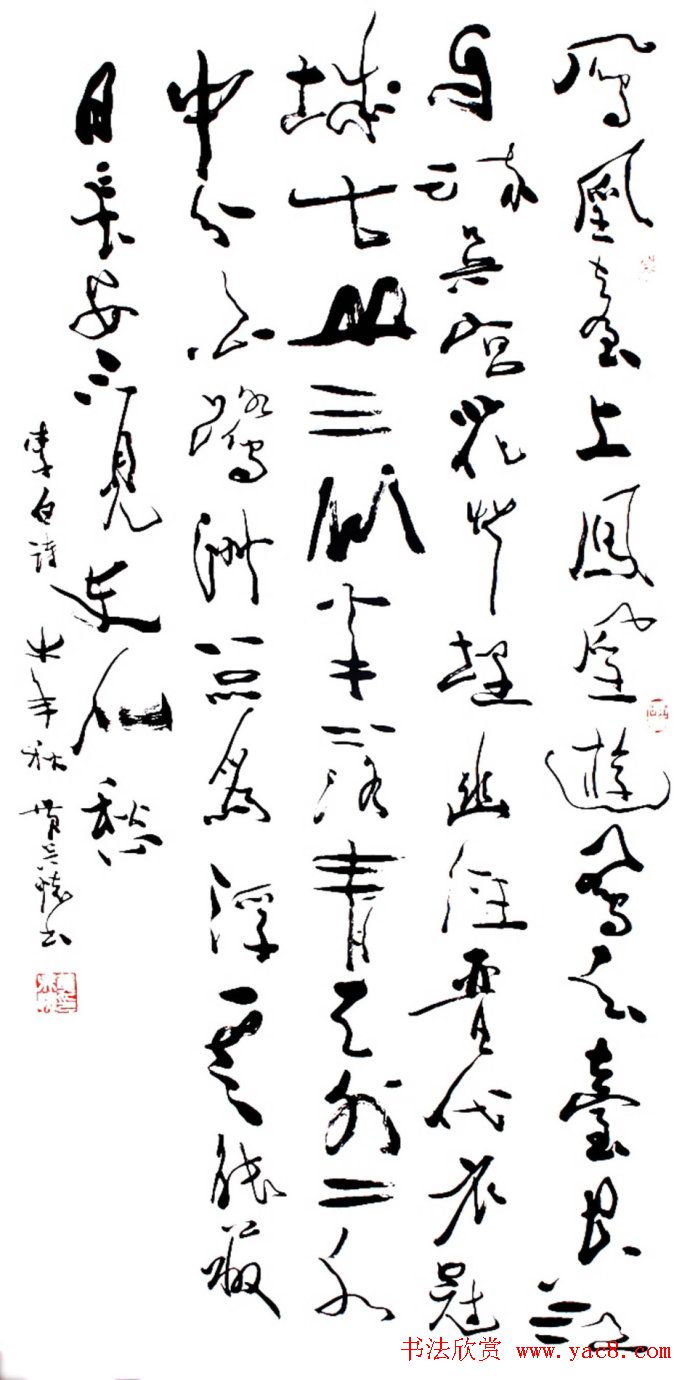 鳳凰臺上鳳凰遊鳳去臺空江
自流吳宮花草埋幽徑晉代衣冠
成古丘三山半落青天外二水
中分白鷺洲總為浮雲能蔽
日長安不見使人愁
李白詩 年秋 書
书法欣赏 www.yac8.com